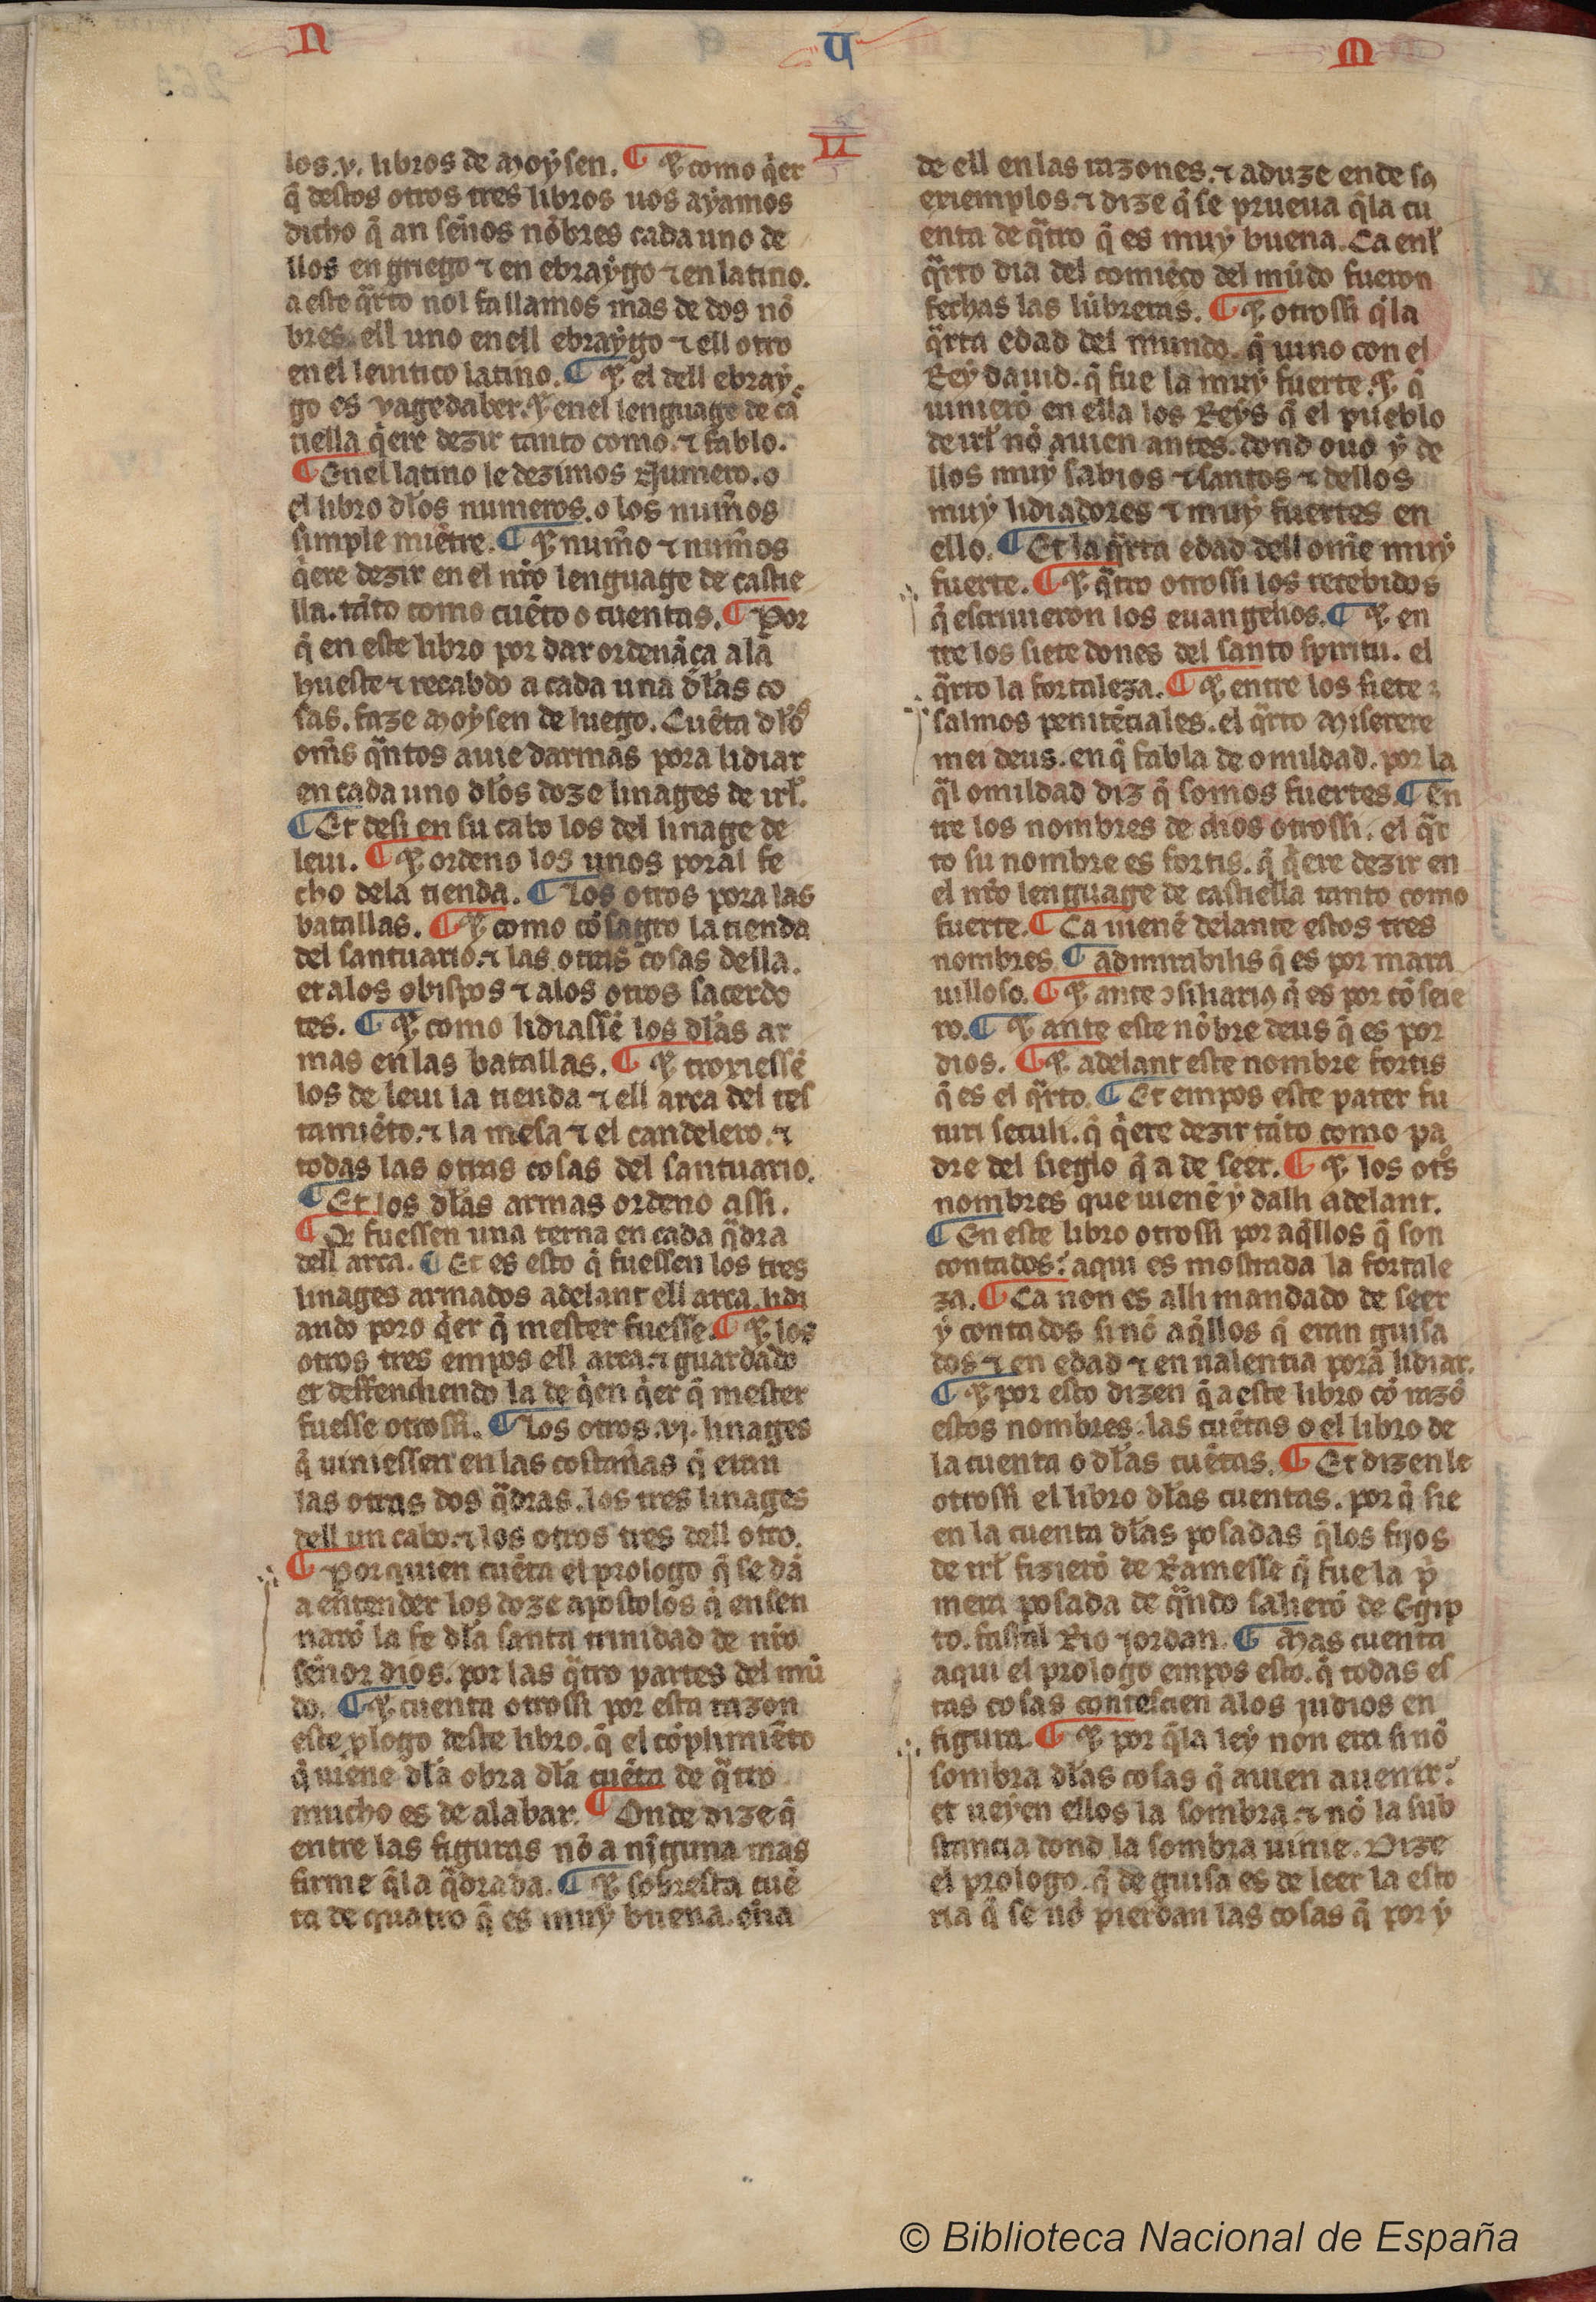 N
U
M
II
los .v. libros de Moysen. ¶ ⁊ como q̇er
q̃ destos otros tres libros uos ayamos
dicho q̃ an sẽnos nõbres cada uno de
llos en griego ⁊ en ebraygo ⁊ en latino.
a este q̃rto nol fallamos mas de dos nõ
bres. ell uno en ell ebraygo ⁊ ell otro
en el leuitico latino. ¶ ⁊ el dell ebray
go es vagedaber. ⁊ en el lenguage de ca
tiella q̇ere dezir tanto como. ⁊ fablo.
¶ En el latino le dezimos Numero. o
el libro dłos numeros. o los num̃os
simple miẽtre. ¶ ⁊ num̃o ⁊ num̃os
q̇ere dezir en el nr̃o lenguage de castie
lla. tãto como cuẽto o cuentas. ¶ Por
q̃ en este libro por dar ordenãça ala
hueste ⁊ recabdo a cada una dłas co
sas. faze Moysen de luego. Cuẽta dłos
om̃s q̃ntos auie darmas pora lidiar
en cada uno dłos doze linages de irł.
¶ Et desi en su cabo los del linage de
leui. ¶ ⁊ ordeno los unos poral fe
cho dela tienda. ¶ Los otros pora las
batallas. ¶ ⁊ como cõsagro la tienda
del santuario. ⁊ las otras cosas della.
et alos obispos ⁊ alos otros sacerdo
tes. ¶ ⁊ como lidiassẽ los dłas ar
mas en las batallas. ¶ ⁊ troxiessẽ
los de leui la tienda ⁊ ell arca del tes
tamiẽto. ⁊ la mesa ⁊ el candelero. ⁊
todas las otras cosas del santuario.
¶ Et los dłas armas ordeno assi.
¶ Q̃ fuessen una terna en cada q̃dra
dell arca. ¶ Et es esto q̃ fuessen los tres
linages armados adelant ell arca. lidi
ando poro q̇er q̃ mester fuesse. ¶ ⁊ los
otros tres empos ell arca. ⁊ guardãdo
et deffendiendo la de q̇en q̇er q̃ mester
fuesse otrossi. ¶ Los otros .vj. linages
q̃ uiniessen en las costañas q̃ eran
las otras dos q̃dras. los tres linages
dell un cabo. ⁊ los otros tres dell otro.
¶ Por quien cuẽta el prologo q̃ se da
a entender los doze apostolos q̃ ensen
naro la fe dła santa trinidad de nr̃o
señor dios. por las q̃tro partes del mũ
do. ¶ ⁊ cuenta otrossi por esta razon
este plogo deste libro. q̃ el cõplimiẽto
q̃ uiene dła obra dła cuẽta de q̃tro
mucho es de alabar. ¶ Onde dize q̃
entre las figuras nõ a ninguna mas
firme q̃la q̃drada. ¶ ⁊ sobresta cuẽ
ta de quatro q̃ es muy buena.
de ell en las razones. ⁊ aduze ende sꝯ
exiemplos. ⁊ dize q̃ se prueua q̃la cu
enta de q̃tro q̃ es muy buena. Ca enł
q̃rto dia del comiẽço del mũdo fueron
fechas las lũbreras. ¶ ⁊ otrossi q̃la
q̃rta edad del mundo. q̃ uino con el
Rey dauid. q̃ fue la muy fuerte. ⁊ q̃
uinierõ en ella los Reys q̃ el pueblo
de irł nõ auien antes. dond ouo y de
llos muy sabios ⁊ santos ⁊ dellos
muy lidiadores ⁊ muy fuertes en
ello. ¶ Et la q̃rta edad dell om̃e muy
fuerte. ¶ ⁊ q̃tro otrossi los recebidos
q̃ escriuieron los euangelios. ¶ ⁊ en
tre los siete dones del santo spiritu. el
q̃rto la fortaleza. ¶ ⁊ entre los siete
salmos penitẽciales. el q̃rto Miserere
mei deus. en q̃ fabla de omildad. por la
q̃l omildad diz q̃ somos fuertes. ¶ En
tre los nombres de dios otrossi. el q̃r
to su nombre es fortis. q̃ q̇ere dezir en
el nr̃o lenguage de castiella tanto como
fuerte. ¶ Ca uienẽ delante estos tres
nombres. ¶ admirabilis q̃ es por mara
uilloso. ¶ ⁊ ante ɔsiliariꝯ q̃ es por cõseie
ro. ¶ ⁊ ante este nõbre deus q̃ es por
dios. ¶ ⁊ adelant este nombre fortis
q̃ es el q̃rto. ¶ Et empos este pater fu
turi seculi. q̃ q̇ere dezir tãto como pa
dre del sieglo q̃ a de seer. ¶ ⁊ los otˢs
nombres que uienẽ y dalli adelant.
¶ En este libro otrossi por aq̃llos q̃ son
contados: aqui es mostrada la fortale
za. ¶ Ca non es alli mandado de seer
y contados sinõ aq̃llos q̃ eran guisa
dos ⁊ en edad ⁊ en ualentia pora lidiar.
¶ ⁊ por esto dizen q̃ a este libro cõ razõ
estos nombres. las cuẽtas o el libro de
la cuenta o dłas cuẽtas. ¶ Et dizenle
otrossi el libro dłas cuentas. por q̃ sie
en la cuenta dłas posadas q̃los fijos
de irł fizierõ de Ramesse q̃ fue la p̃
mera posada de q̃ndo salierõ de Egip
to. fastal Rio Jordan. ¶ Mas cuenta
aqui el prologo empos esto. q̃ todas es
tas cosas contescien alos judios en
figura. ¶ ⁊ por q̃la ley non era sinõ
sombra dłas cosas q̃ auien auenir:
et ueyen ellos la sombra. ⁊ nõ la sub
stancia dond la sombra uinie. Dize
el prologo. q̃ de guisa es de leer la esto
ria q̃ se nõ pierdan las cosas q̃ por y
© Biblioteca Nacional de España